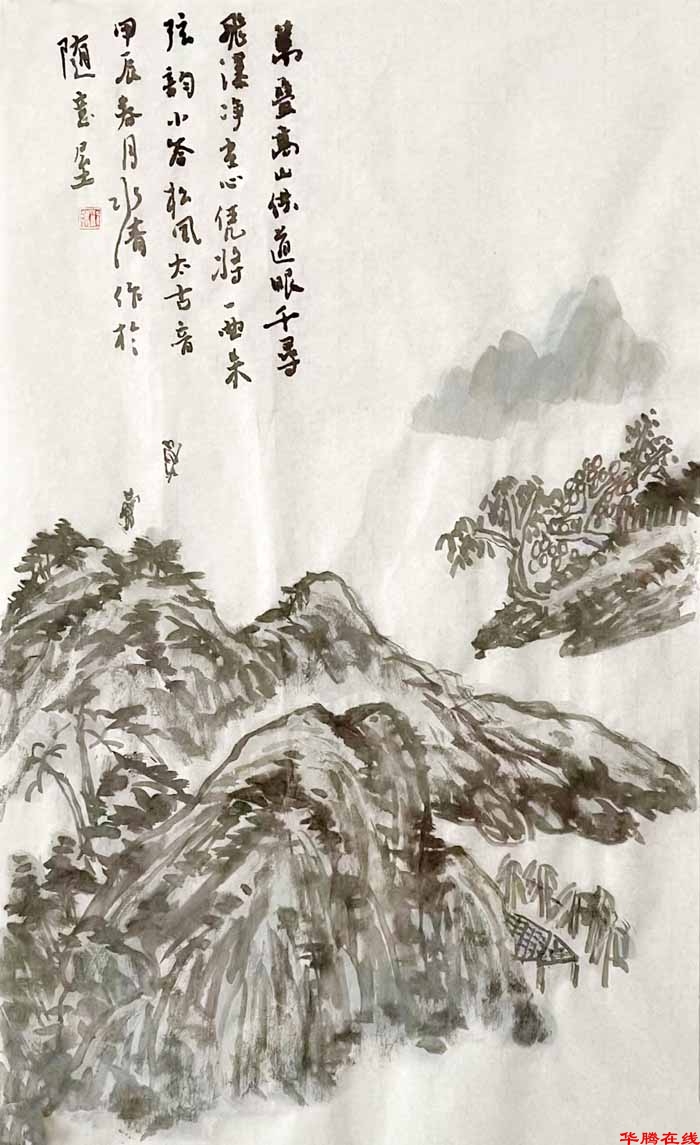 萬疊高山供道眼千尋
飛瀑净尘心凭將一曲朱
弦韵小答松风太古音
甲辰春月水清作於
随意屋
华腾在线